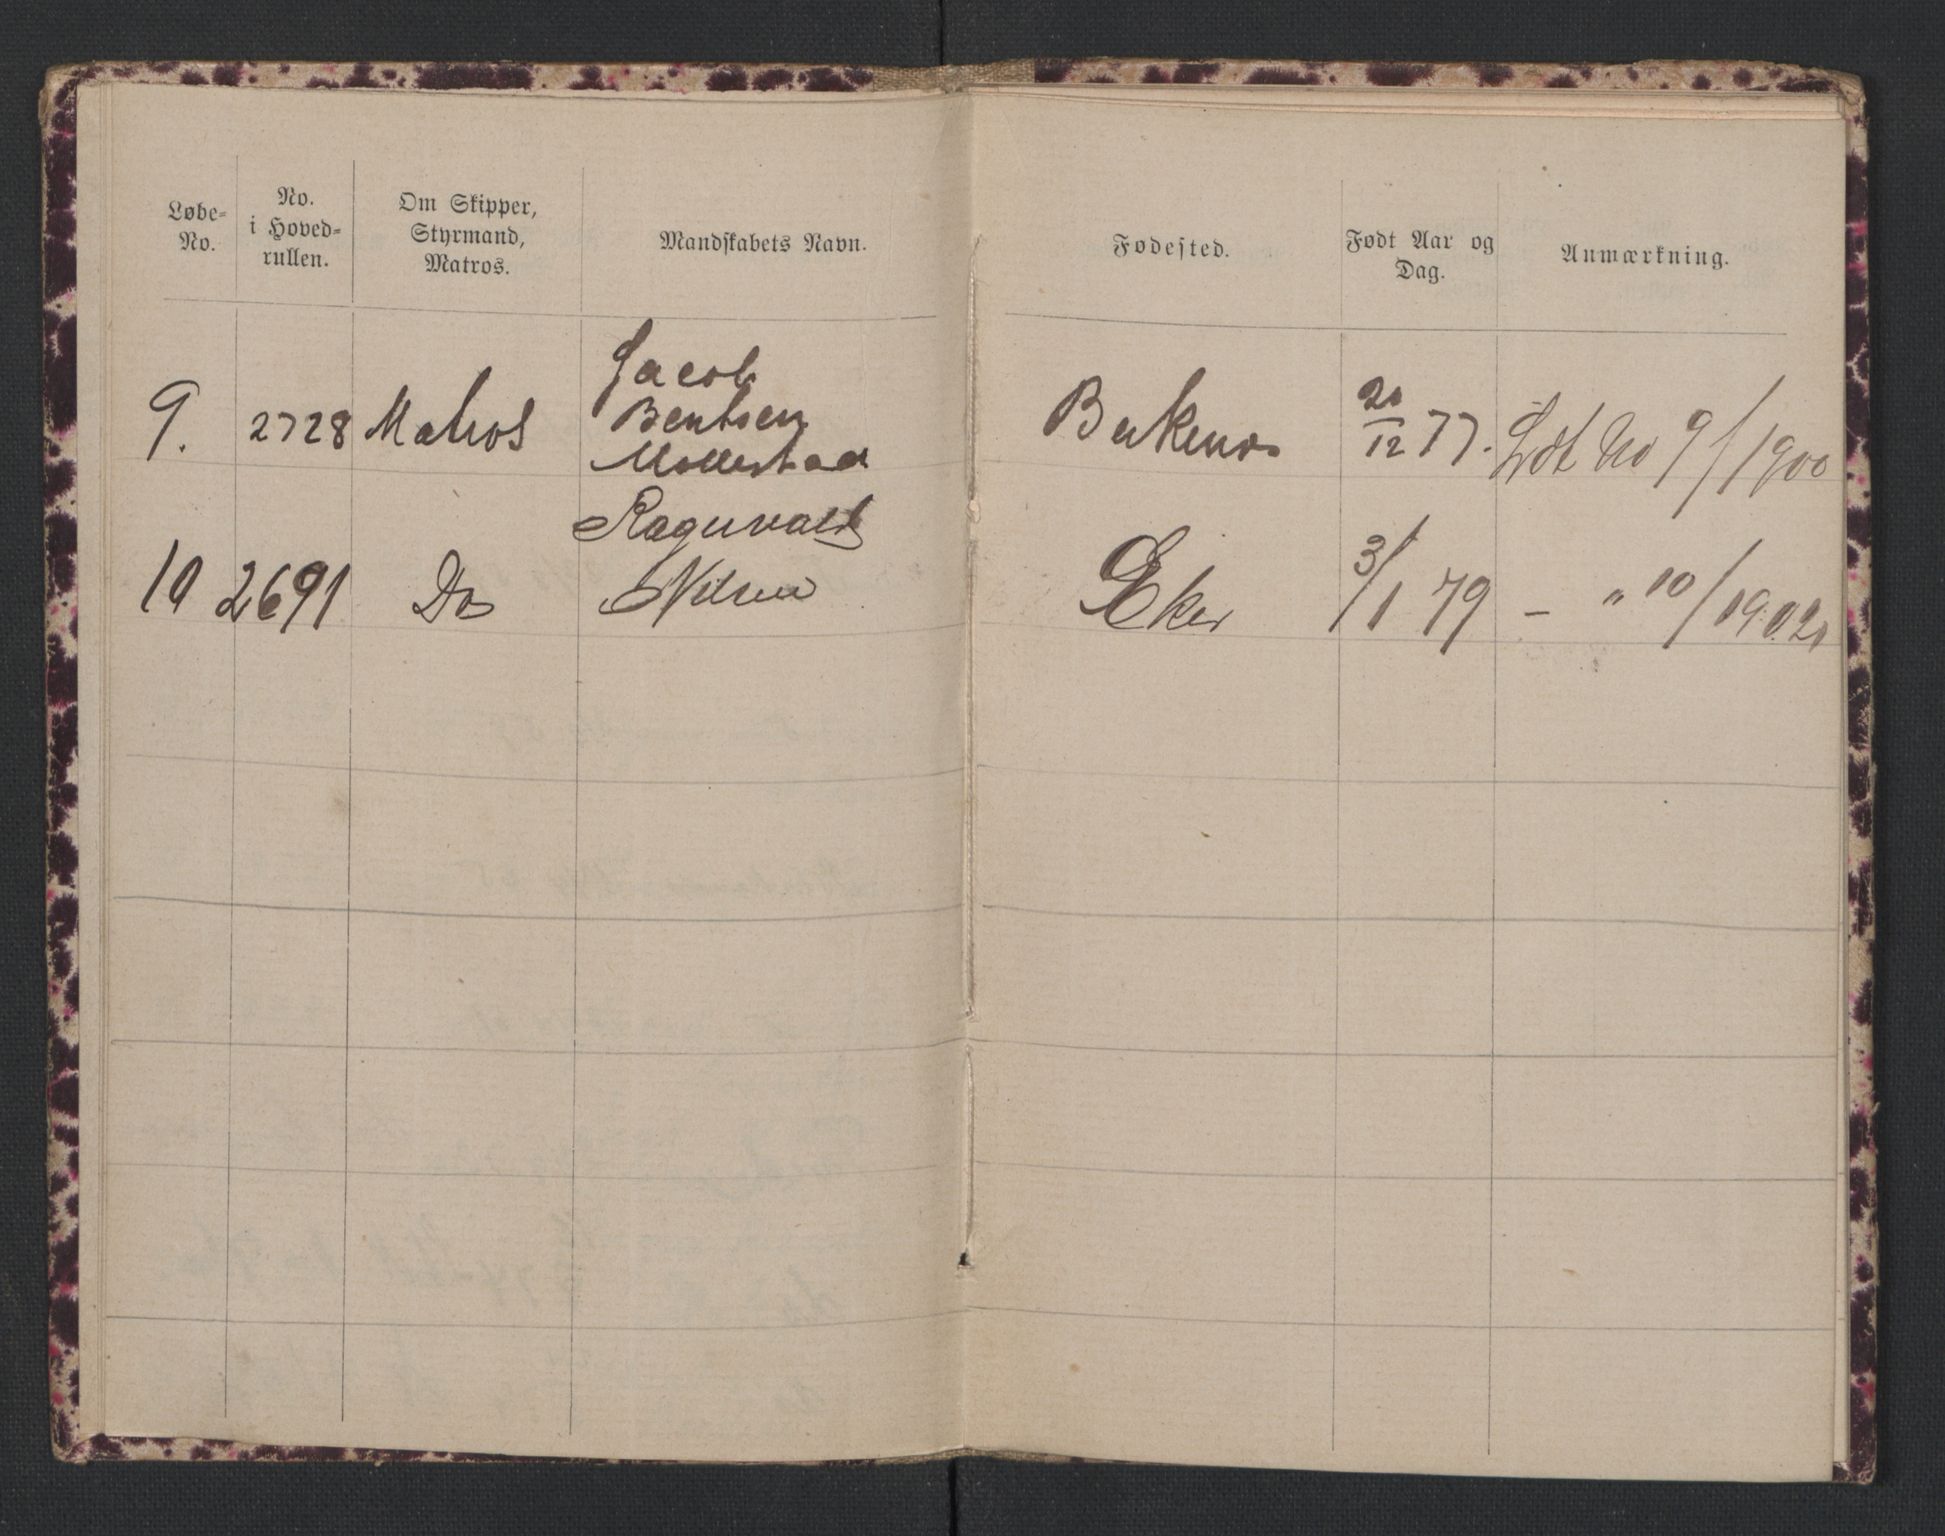 Løbe-
No.
No.
i Hoved-
rullen.
Om Skipper,
Styrmand,
Matros.
Mandskabets Navn.
Fødested.
Født Aar og
Dag.
Anmærkning.
9. 2728 Matros Jacob
Bentsen
Møllestad
Birkenæs 20/12 77. Ldt No 9/1900
10 2691 Do Ragnvald
Nilsen
Eker 3/1 79 — " 10/1902